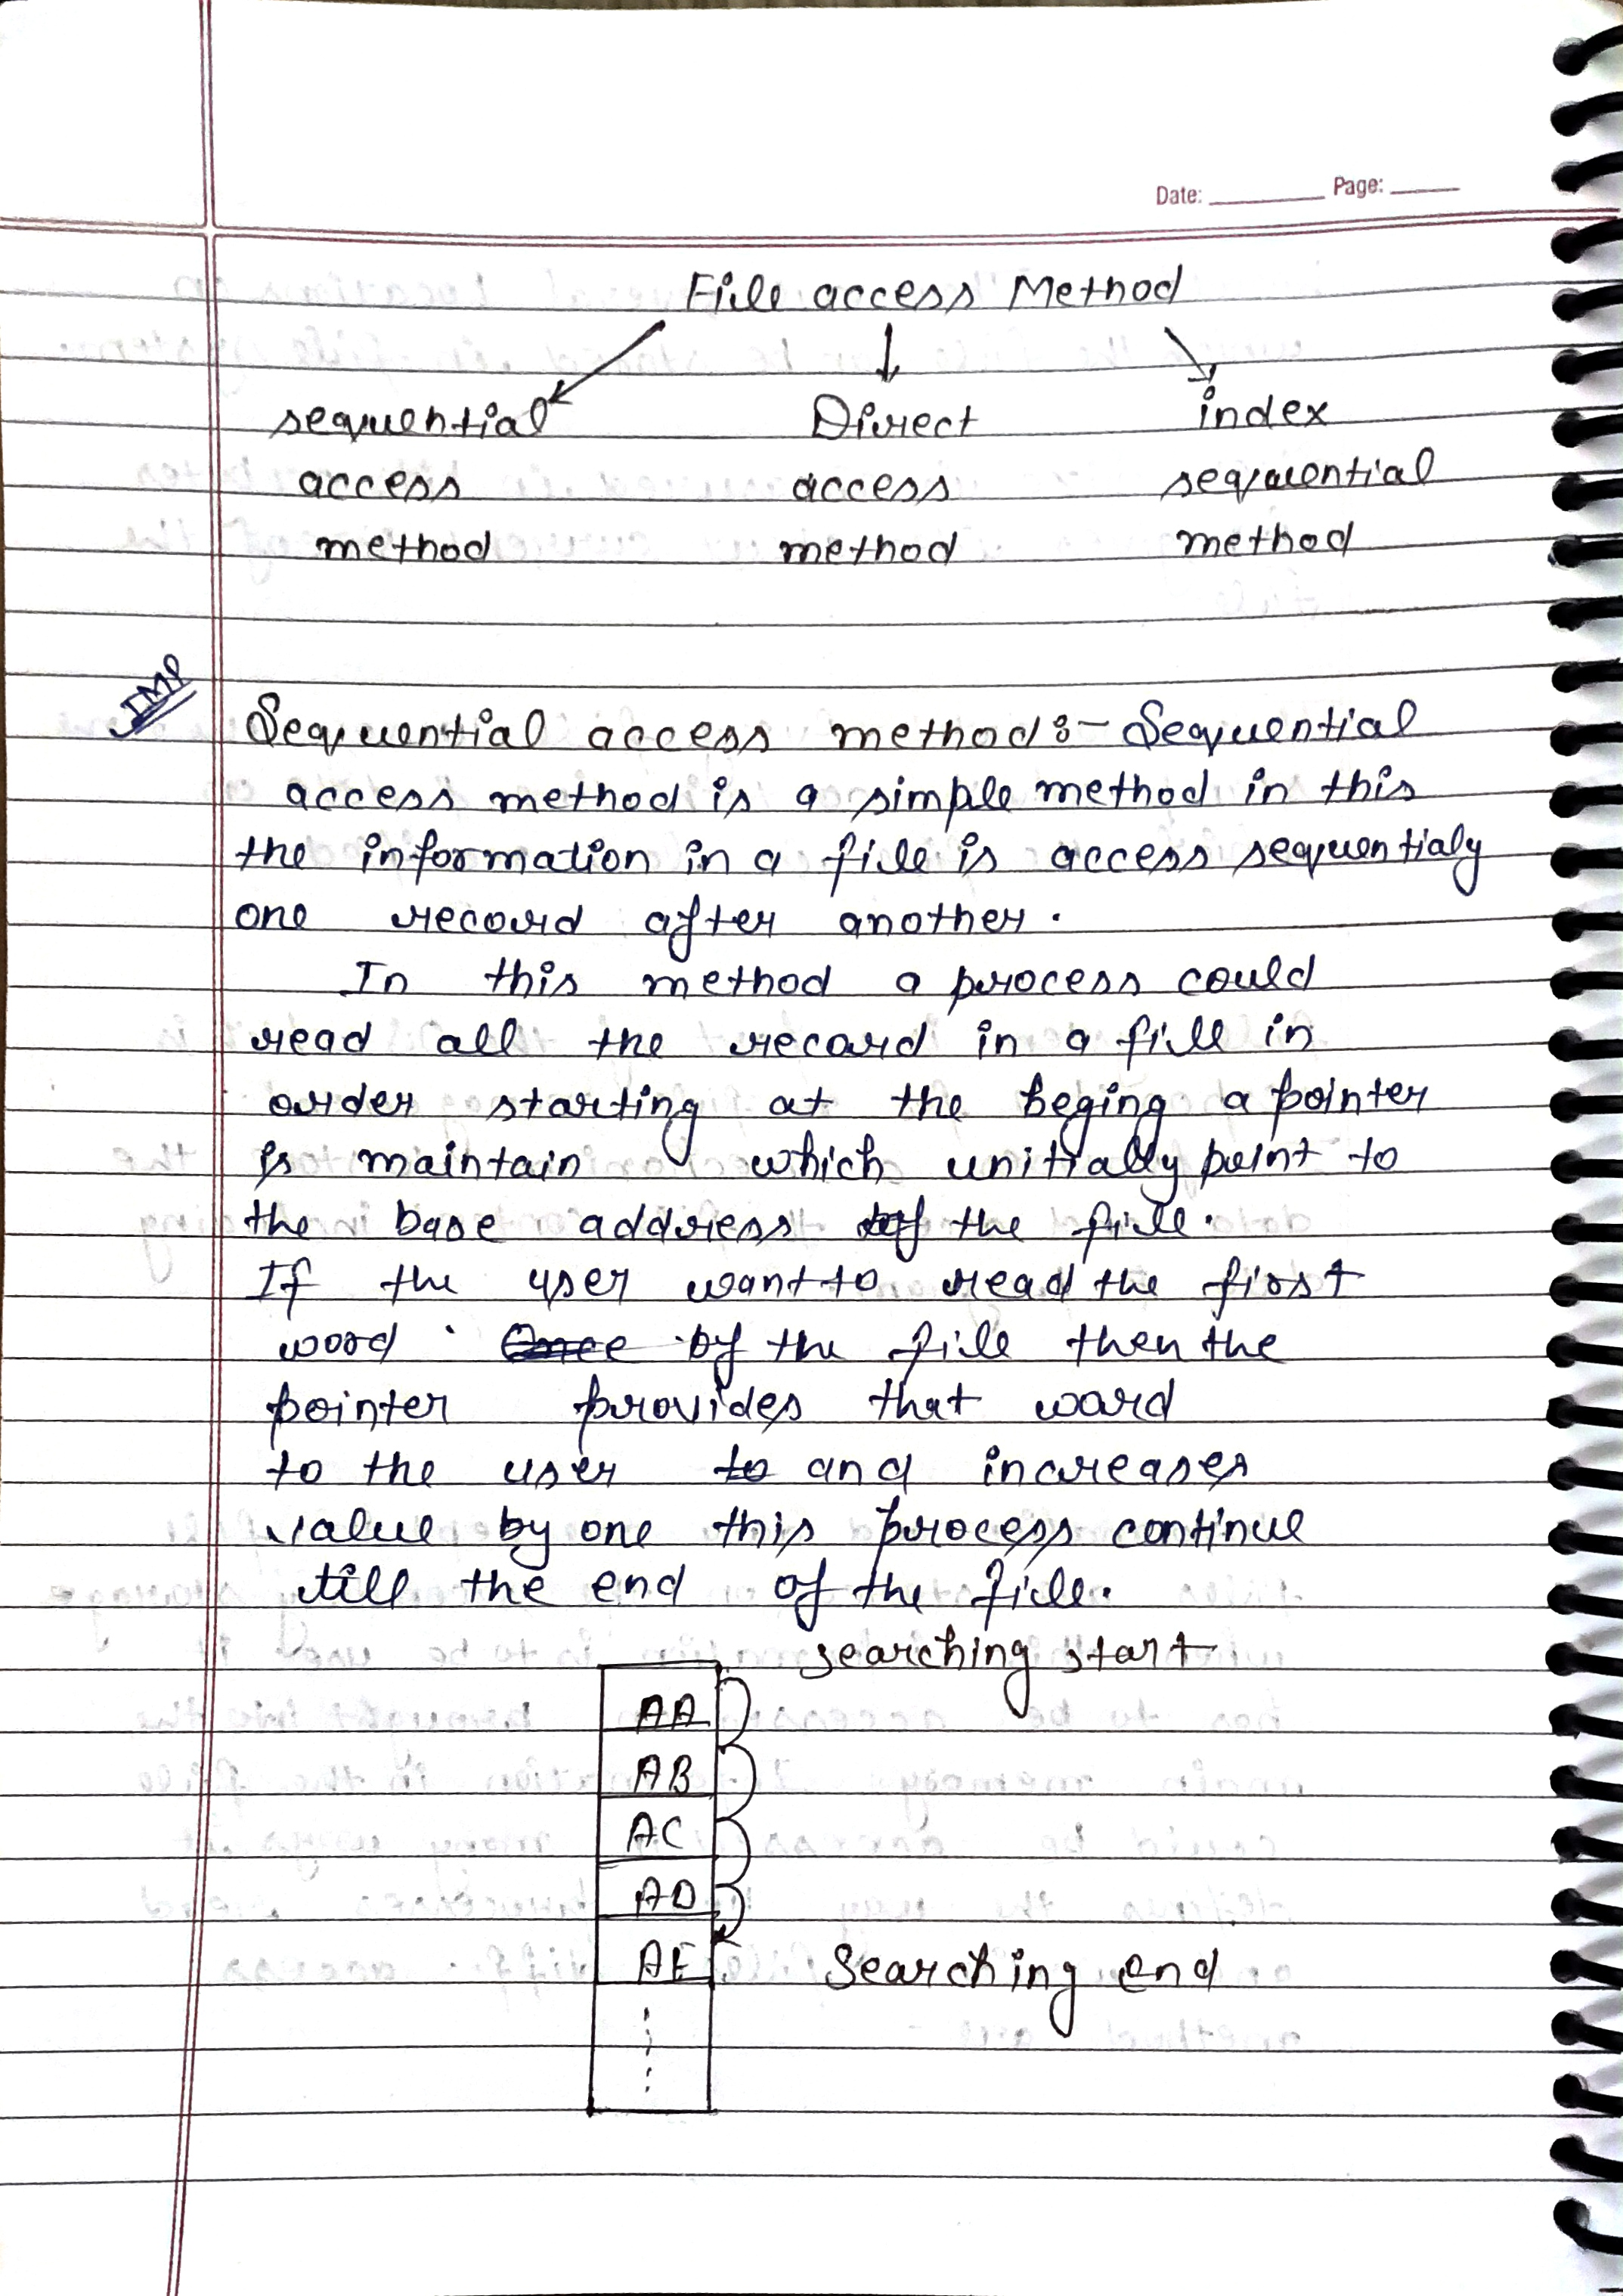 Date: Page:
File access Method
sequential Direct index
access access sequential
method method method
IMP
Sequential access method :- Sequential
access method is a simple method in this
the information in a file is access sequentialy
one record after another.
In this method a process could
read all the record in a fill in
order starting at the beging a pointer
is maintain which unitially point to
the base address of the file.
If the user want to read the first
word of the file then the
pointer provides that word
to the user and increases
value by one this process continue
till the end of the file.
searching start
AA
AB
AC
AD
AE
Searching end